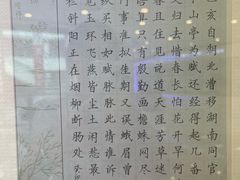 己亥自湖北漕移湖南同官
山亭为赋
又归去惜春长怕花开早何
春且住见说道天涯芳草迷
算只有殷勤画檐蛛网尽
门事准拟佳期又误蛾眉曾
买相如赋脉脉此情谁诉
见玉环飞燕皆尘土闲愁最
栏斜阳正在烟柳断肠处